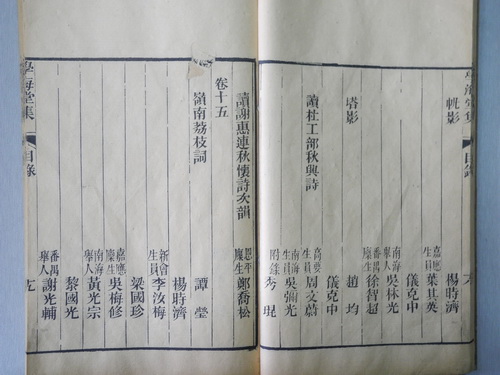 學海堂集
目錄
帆影
楊時濟
嘉應生員
葉其英
儀克中
南海舉人
吳林光
番禺廩生
徐智超
塔影
趙均
儀克中
讀杜工部秋興詩
高要生員
周文蔚
南海生員
吳彌光
附錄
岑琨
讀謝惠連秋懷詩次韻
恩平廩生
鄭喬松
卷十五
嶺南荔枝詞
譚瑩
楊時濟
新會生員
李汝梅
梁國珍
嘉應廩生
吳梅修
南海舉人
黃光宗
黎國光
番禺舉人
謝光輔
學海堂集
目錄